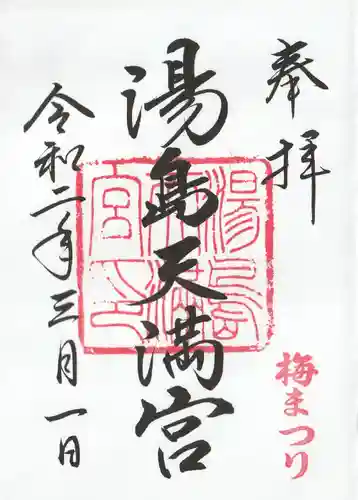 奉拝
湯島天満宮
湯島天満宮印
梅まつり
令和二年三月一日